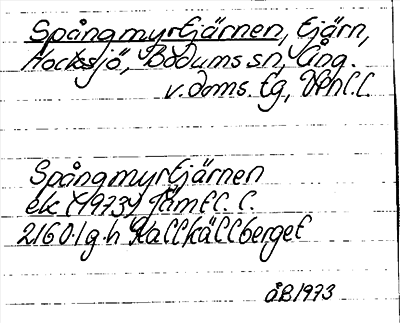 Spångmyrtjärnen, tjärn,
Hocksjö, Bodums sn, Ång.
v.doms. tg, Vnl. l.
Spångmyrtjärnen
ek (1973) Jämtl. l.
21601 g.h Kallkällberget
åB1973